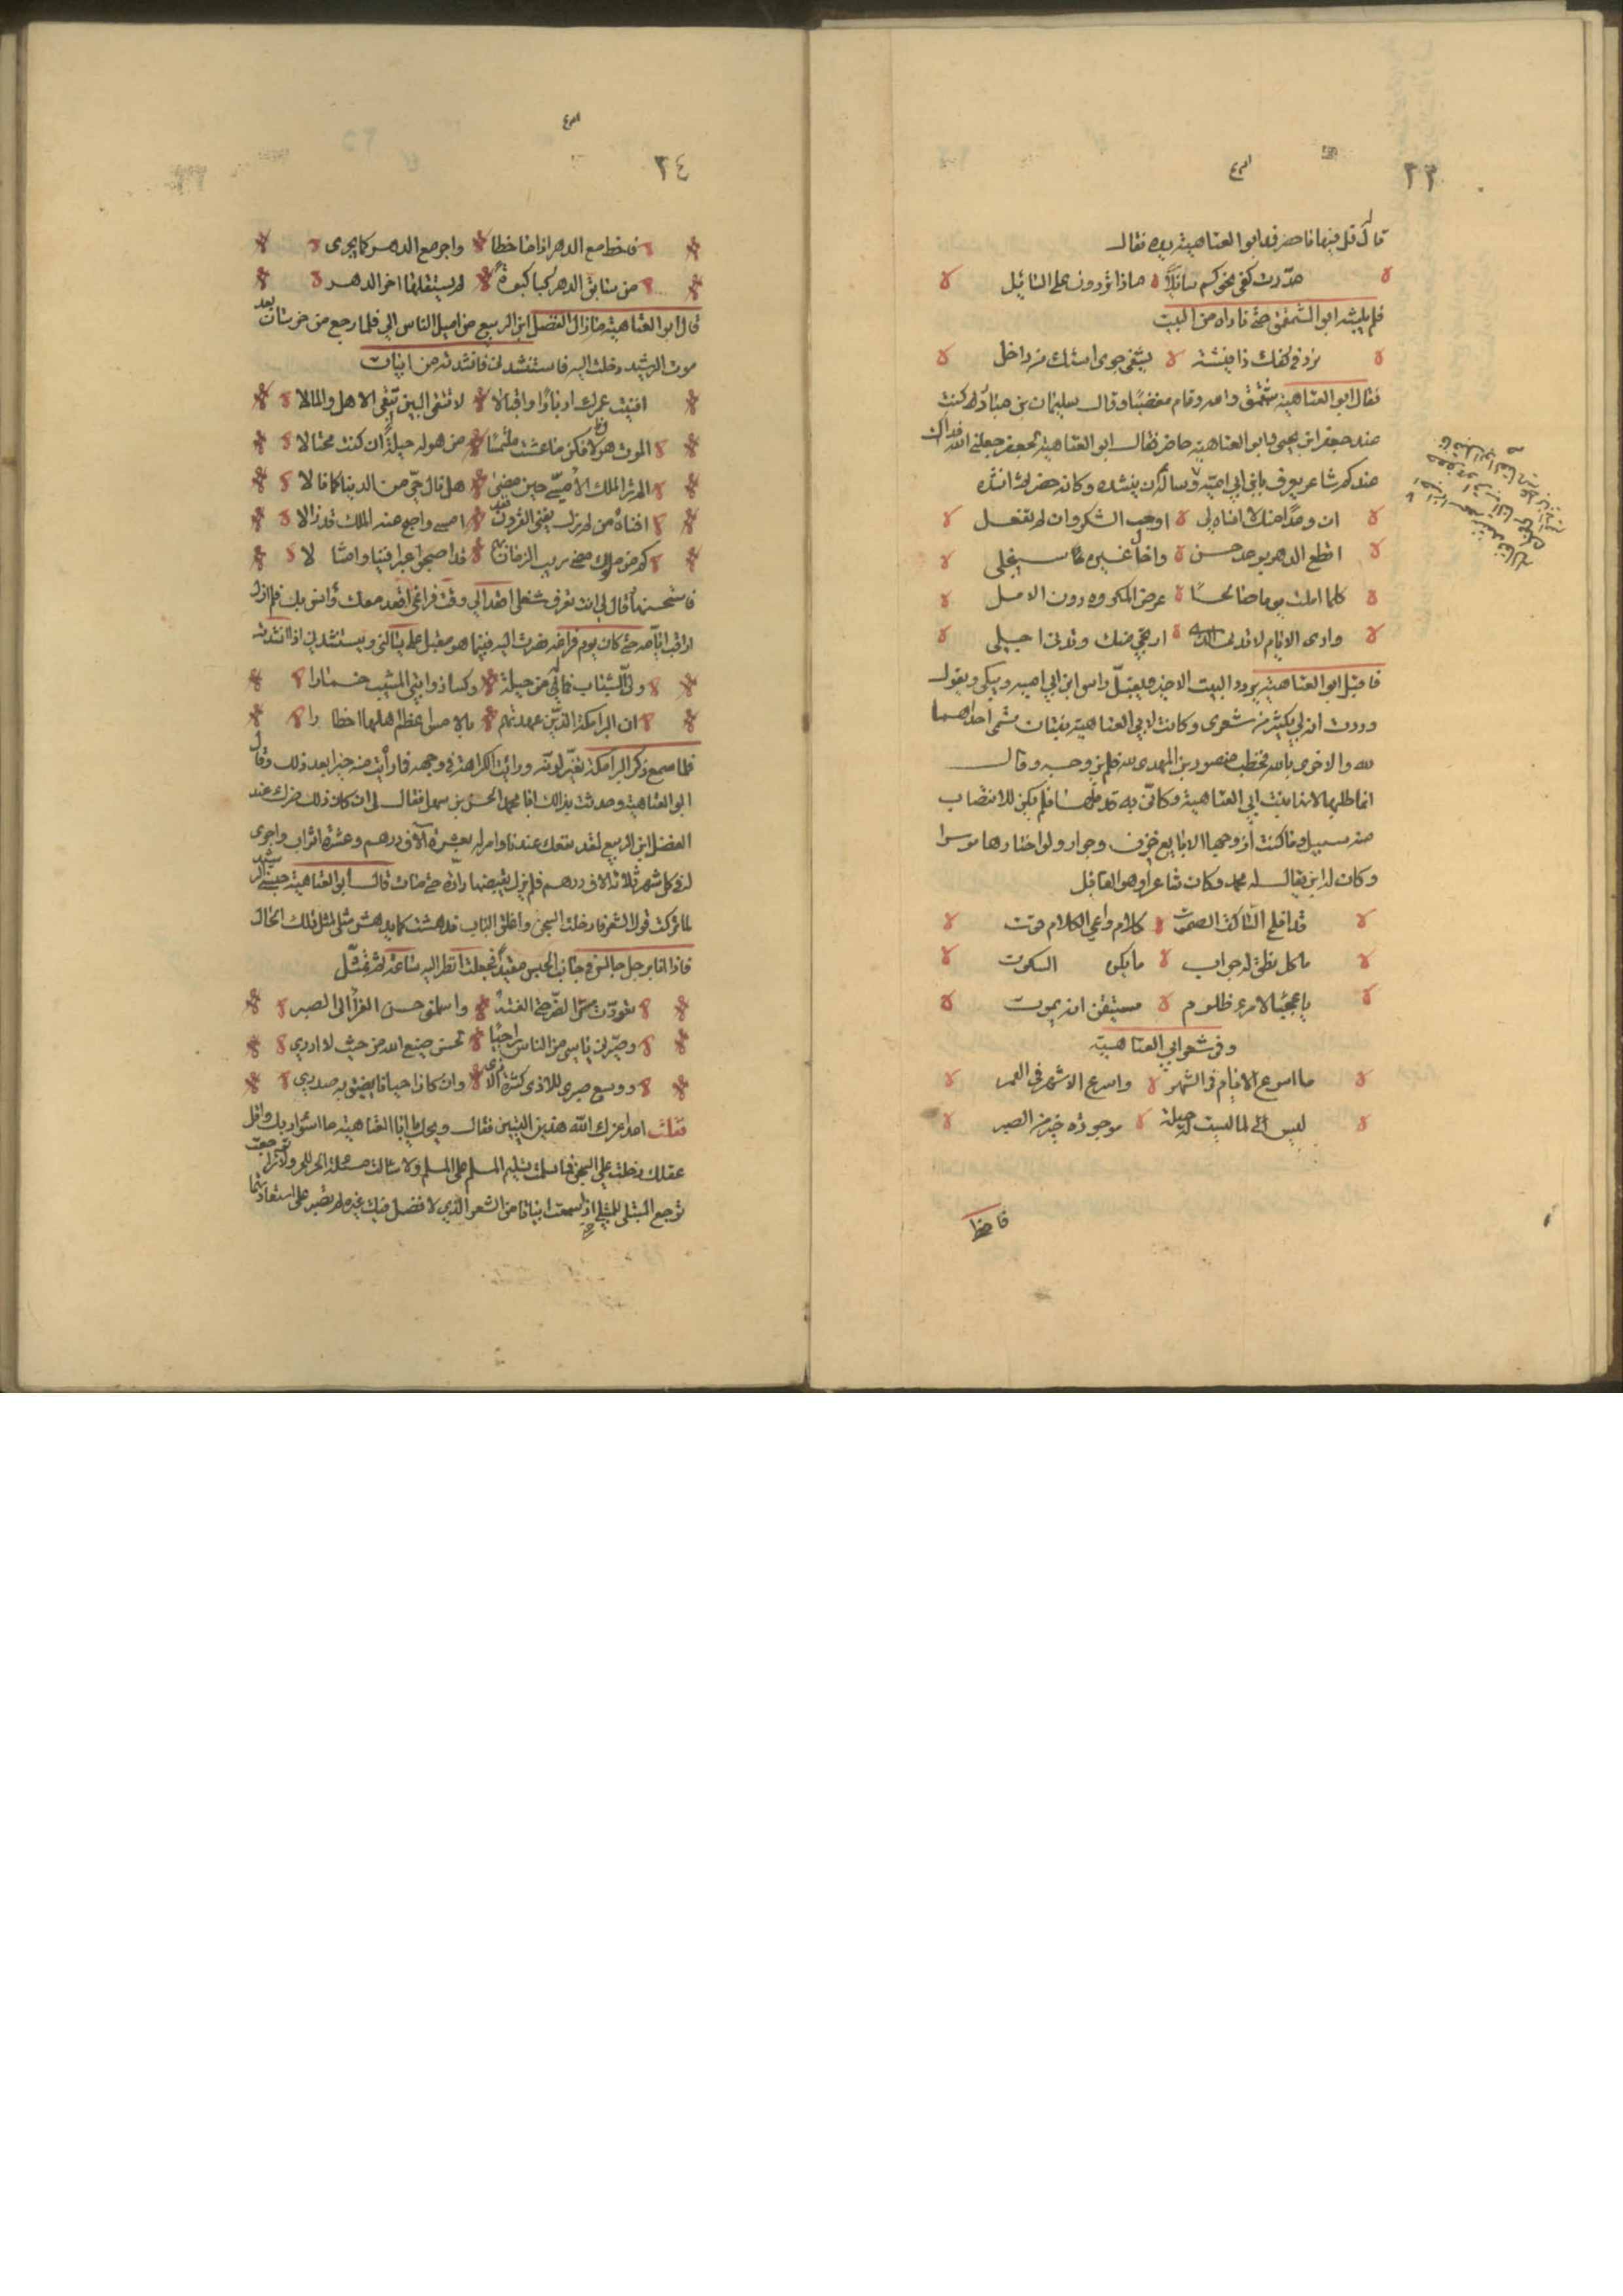 ٢٣
قال قل فيها ما حضر فمد ابو العتاهية يده فقال
مددت كفى نحوكم سائلاً ماذا تردون على السائل
فلم يلبث ابو الشمقمق حتى ناداه من البيت
نرد فى كفك ذا فيشة يشفى جوى استك من داخل
فقال ابو العتاهية شمقمق والله وقام مغضبا وقال سليمان بن عباد كنت
عند جعفر ابن يحيى وابو العتاهية حاضر فقال ابو العتاهية لجعفر جعلنى الله فداك
عندكم شاعر يعرف بابن ابى امية وساله ان ينشده وكان حضر انشده
ان وعدا منك لا انساه لى اوجب الشكر وان لم تفعل
اقطع الدهر بوعد حسن واجلى غمرة ما تنجلى
كلما املت يوما صالحا عرض المكروه دون الامل
وارى الايام لا تدنى الذى ارتجى منك وتدنى اجلى
فاقبل ابو العتاهية يردد البيت الاخير ويقبل راس ابن ابى امية ويبكى ويقول
وددت انه لى بكثير من شعرى وكانت لابى العتاهية بنتان سمى احداهما
لله والاخرى بالله فخطب منصور بن المهدى لله فلم يزوجه وقال
انما طلبها لانها بنت ابى العتاهية وكانى به قد ملها فلم يكن للانتصاب
منه سبيل وما كنت ازوجها الا بايع خزف وجرار ولو اختارها موسرا
وكان له ابن يقال له محمد وكان شاعرا وهو القائل
قد افلح الساكت الصموت كلام واعى الكلام قوت
ما كل نطق له جواب ما يكره السكوت
يا عجبا لامرء ظلوم مستيقن انه يموت
ومن شعر ابى العتاهية
ما اسرع الايام فى الشهر واسرع الاشهر فى العمر
ليس لما ليست له حيلة موجودة خير من الصبر
فاخط
٢٤
فاخط مع الدهر اذا ما خطا واجر مع الدهر كما يجرى
من سابق الدهر كبا كبوة لم يستقلها اخر الدهر
قال ابو العتاهية ما زال الفضل ابن الربيع من اميل الناس الى فلما رجع من خرسان بعد
موت الرشيد دخلت اليه فاستنشدنى فانشدته من ابيات
افنيت عمرك ادبارا واقبالا تبغى البنين وتبغى الاهل والمالا
الموت هول فكن ما عشت ملتمسا من هوله حيلة ان كنت محتالا
الم تر الملك الامسى حين مضى هل نال حى من الدنيا كما نالا
افناه من لم يزل يفنى القرون فقد امسى واصبح عنه الملك قد زالا
كم من ملوك مضى ريب الزمان قد اصبحوا عبرا فينا وامثالا
فاستحسنها قال لى انت تعرف شغلى فعد الى وقت فراغى اقعد معك وانس بك فلم ازل
اراقب ايامه حتى كان يوم فراغه فصرت اليه فبينما هو مقبل على يسألنى ويستنشدنى اذا انشدته
ولى الشباب فما له من حيلة وكسا ذوابتى المشيب خمارا
اين البرامكة الذين عهدتهم بالامس اعظم اهلها اخطارا
فلما سمع ذكر البرامكة تغير لونه ورايت الكراهة فى وجهه فما رأيت منه خيرا بعد ذلك وقال
ابو العتاهية وحدثت بذالك ابا محمد الحسن بن سهل فقال لى ان كان ذلك ضرك عند
الفضل ابن الربيع لقد نفعك عندنا وامر له بعشرة آلاف درهم وعشرة اثواب واجرى
له فى كل شهر ثلاثة الاف درهم فلم يزل يقبضها دارة حتى مات قال ابو العتاهية حبسنى الرشيد
لما تركت قول الشعر فادخلت السجن واغلق الباب فدهشت كما يدهش مثلى لمثل تلك الحال
فاذا انا برجل جالس فى جانب الحبس مقيد فجعلت انظر اليه ساعة ثم تمثل
تعودت مس الضر حتى الفته واسلمنى حسن العزا الى الصبر
وصيرنى ياسى من الناس راجيا لحسن صنيع الله من حيث لا ادرى
ووسع صبرى للاذى كثرة الاذى وان كان احيانا يضيق به صدرى
فقلت اعد اعزك الله هذين البيتين فقال ويحك يا ابا العتاهية ما اسوء ادبك واقل
عقلك دخلت على السجن فما سلمت تسليم المسلم على المسلم ولا سالت مسئلة الحر للحر ولا توجعت
توجع المبتلى للمبتلى حتى اذا سمعت ابياتا من الشعر الذى لا فضل فيك غيره لم تصبر على استعادتها